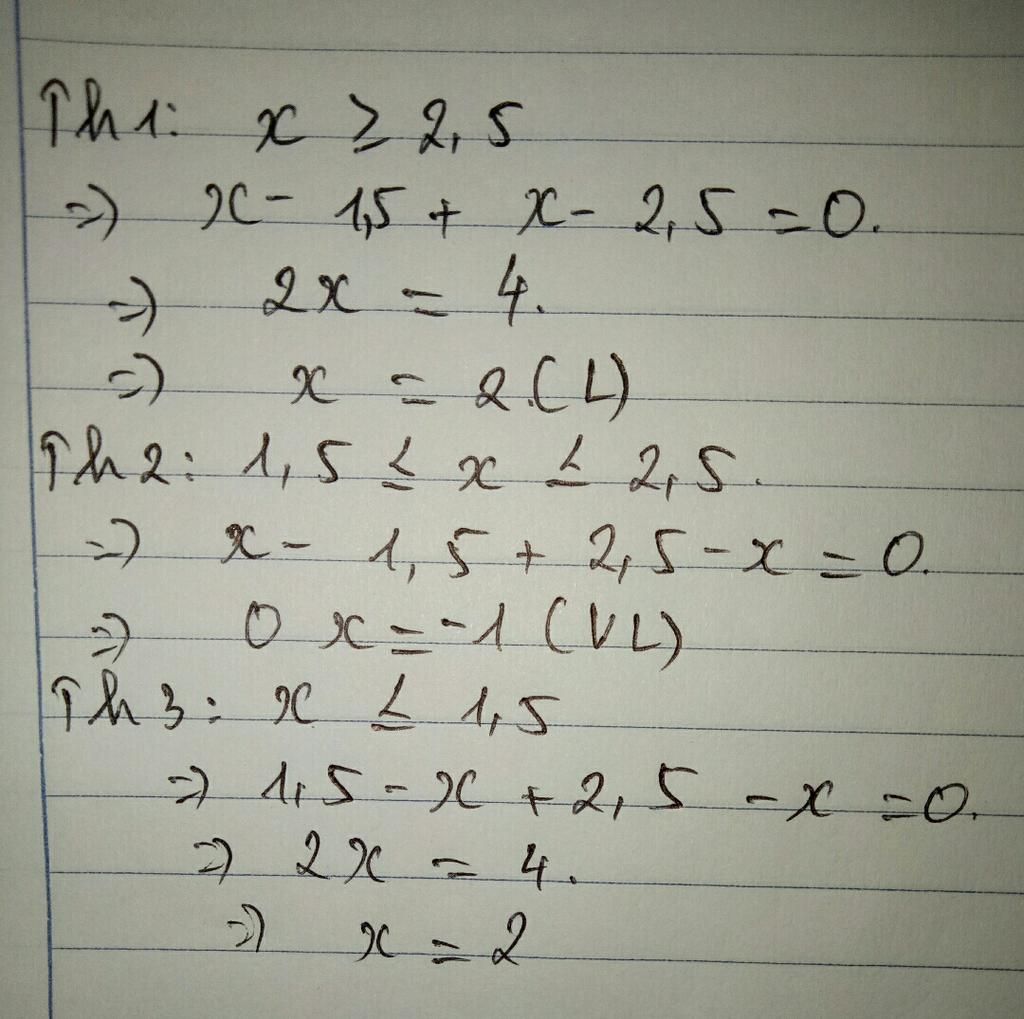 Th1: x ≥ 2,5
=) x - 1,5 + x - 2,5 = 0.
=) 2x = 4.
=) x = 2.(L)
Th2: 1,5 ≤ x ≤ 2,5.
=) x - 1,5 + 2,5 - x = 0.
=) 0 x = -1 (VL)
Th3: x ≤ 1,5
=) 1,5 - x + 2,5 - x = 0.
=) 2x = 4.
=) x = 2